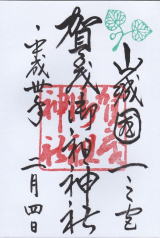 山城國一之宮
賀茂御祖神社
平成卅年二月四日
賀茂
御祖
神社